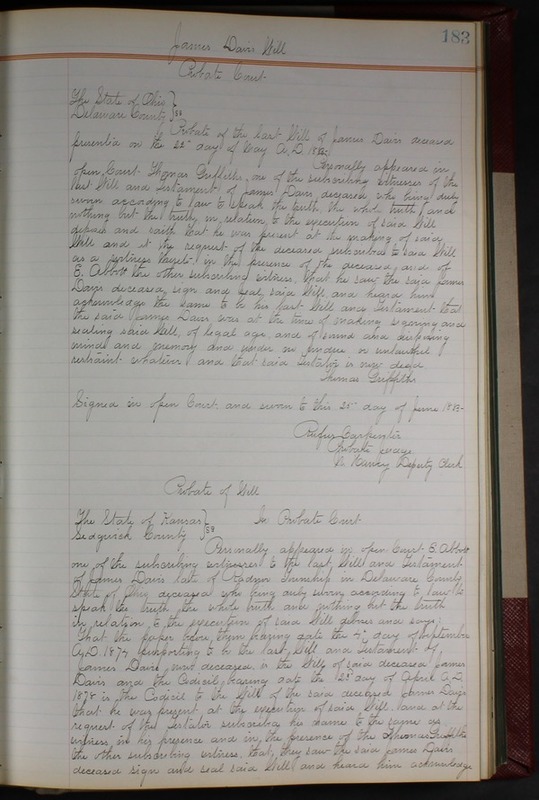 183
James Davis Will
Probate Court
The State of Ohio }
Delaware County } ss
Probate of the Last Will of James Davis deceased
presented on the 25" day of May A.D. 1883
Personally appeared in
open Court Thomas Griffiths one of the subscribing witnesses of the
last Will and Testament of James Davis, deceased who being duly
sworn according to law to speak the truth, the whole truth and
nothing but the truth, in relation to the execution of said Will
deposes and saith that he was present at the making of said
Will and at the request of the deceased subscribed to said Will
as a witness thereto in the presence of the deceased, and of
E. Abbott the other subscribing witness, that he saw the said James
Davis deceased, sign and seal said Will, and heard him
acknowledge the same to be his last Will and Testament that
the said James Davis was at the time of making signing and
sealing said Will, of legal age, and of sound and disposing
mind and memory and under no undue or unlawful
restraint whatever and that said Testator is now dead
Thomas Griffiths
Signed in open Court and sworn to this 25" day of June 1883-
Rufus Carpenter
Probate Judge
Deputy Clerk
Probate of Will
The State of Kansas } In Probate Court
Sedgwick County } ss
Personally appeared in open Court E. Abbott
one of the subscribing witnesses to the last Will and Testament
of James Davis late of Radnor Township in Delaware County
State of Ohio deceased who being duly sworn according to law to
speak the truth the whole truth and nothing but the truth
in relation to the execution of said Will deposes and says,
That the paper here shown bearing date the 4" day of September
A.D. 1877 purporting to be the last Will and Testament of
James Davis, now deceased, is the Will of said deceased James
Davis and the Codicil bearing date the 25" day of April A.D.
1878 is the Codicil to the Will of the said deceased James Davis
that he was present at the execution of said Will and at the
request of the Testator subscribed his name to the same as
witness in his presence and in the presence of the Thomas Griffiths
the other subscribing witness, that they saw the said James Davis
deceased sign and seal said Will and heard him acknowledge